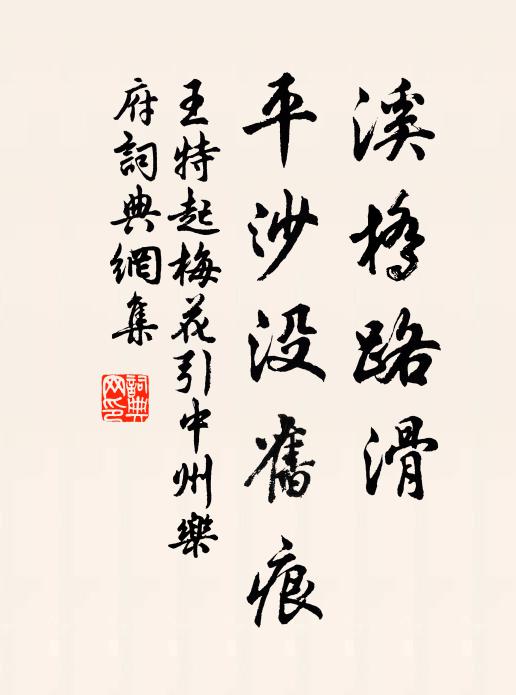 溪橋路滑
平沙没舊痕
王特起梅花引中州樂
府詞典網集
詞典网印